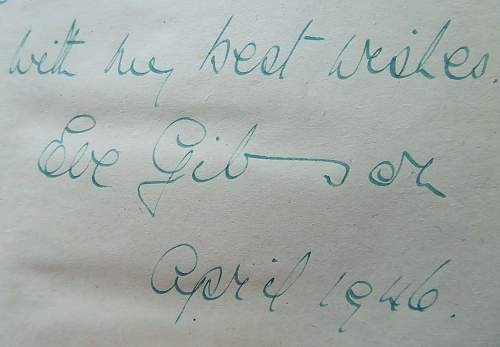 with my best wishes.
Eve Gibson
April 1946.